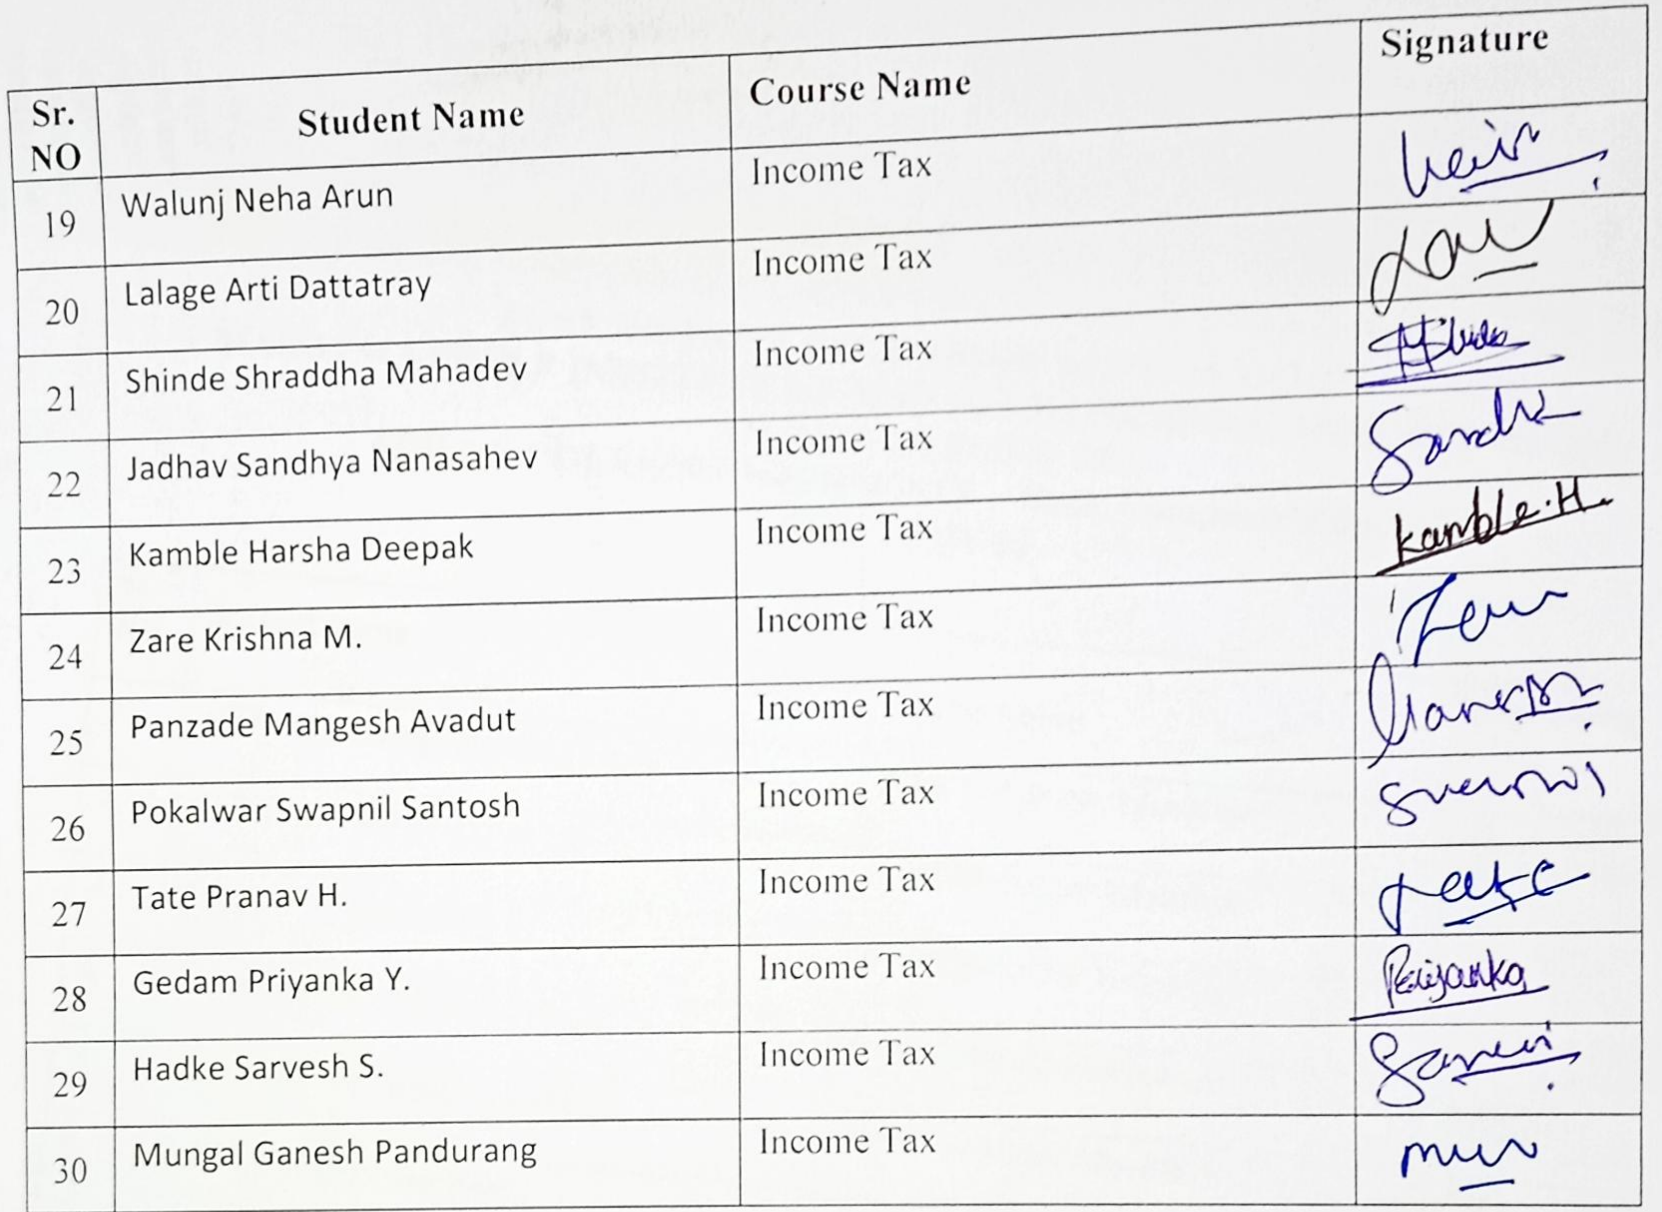 Sr. NO Student Name Course Name Signature
19 Walunj Neha Arun Income Tax
20 Lalage Arti Dattatray Income Tax
21 Shinde Shraddha Mahadev Income Tax
22 Jadhav Sandhya Nanasahev Income Tax
23 Kamble Harsha Deepak Income Tax Kamble.H.
24 Zare Krishna M. Income Tax
25 Panzade Mangesh Avadut Income Tax
26 Pokalwar Swapnil Santosh Income Tax
27 Tate Pranav H. Income Tax
28 Gedam Priyanka Y. Income Tax Priyanka
29 Hadke Sarvesh S. Income Tax
30 Mungal Ganesh Pandurang Income Tax